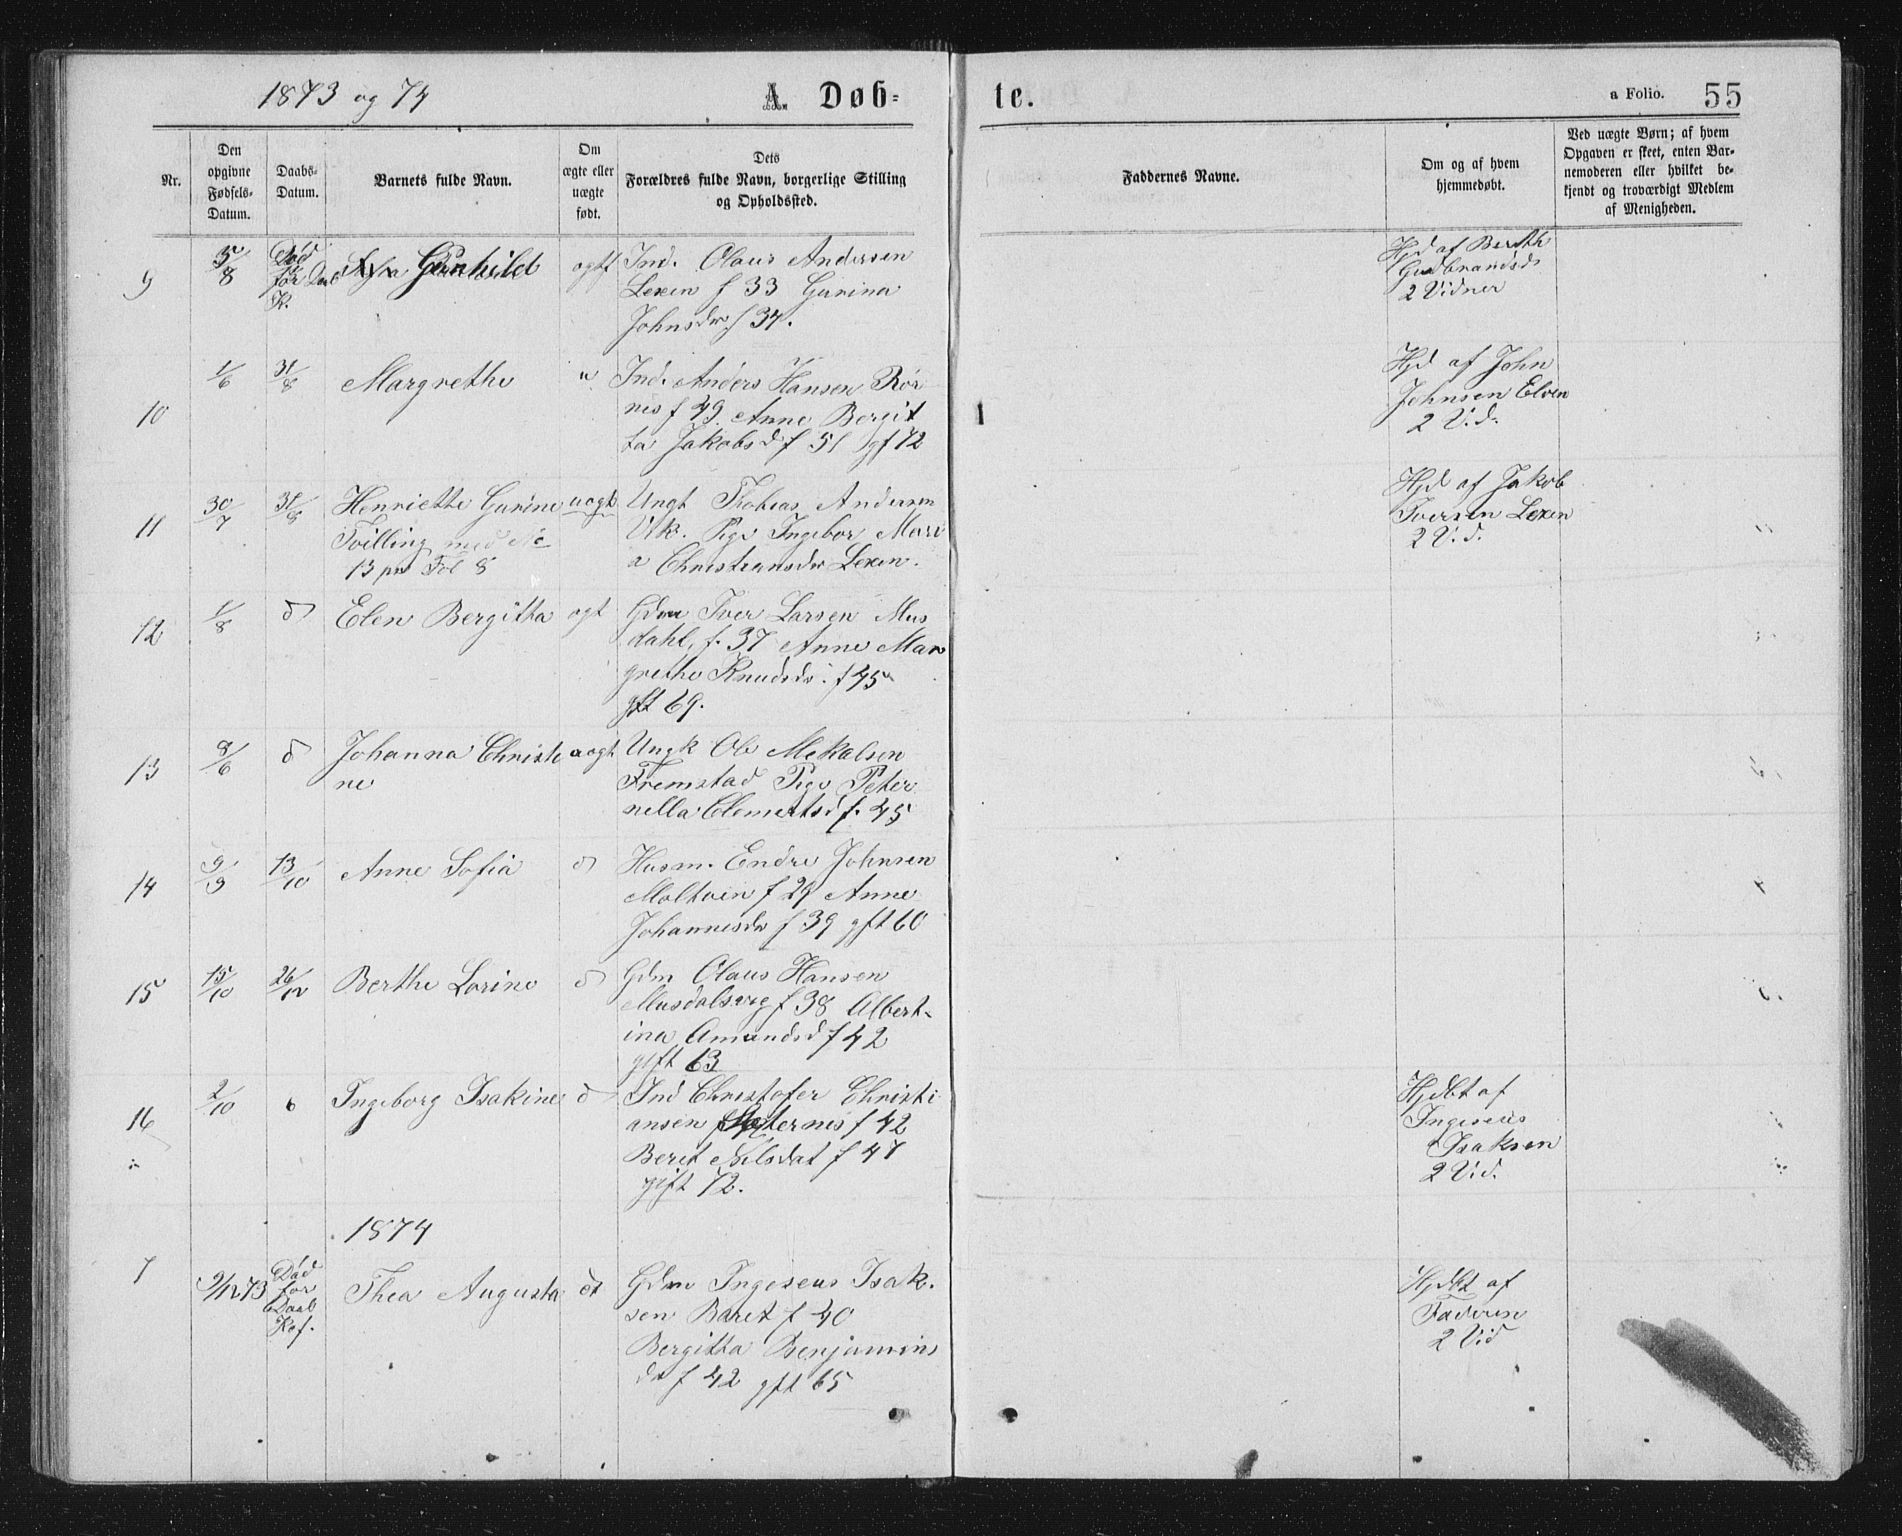 1873 og 74
A. Døb=
te.
a Folio. 55
Nr.
Den opgivne Fødsels-Datum.
Daabs-Datum.
Barnets fulde Navn.
Om ægte eller uægte født.
Dets Forældres fulde Navn, borgerlige Stilling og Opholdssted.
Faddernes Navne.
Om og af hvem hjemmedøbt.
Ved uægte Børn; af hvem Opgaven er skeet, enten Barnemoderen eller hvilket bekjendt og troværdigt Medlem af Menigheden.
9
5/8
Död
før Daab
K.
Gunhild
Ind. Olaus Andersen
Lexen f 33 Gurina
Johnsdr f 34.
Hjd af Berith
Gudbrandsdr
2 Vidner
10
1/6
31/8
Margrethe
"
Ind. Anders Hansen Rör
nes f 49 Anne Bergit
ta Jakobsd f 51 gf 72
Hjd af John
Johnsen Elven
2 Vid.
11
30/7
31/8
Henriette Gurine
Tvilling med No
13 pa Fol 8
uægt
Ungk Thobias Andersen
Vik. Pige Ingebor Mari
a Christiansdr Lexen.
Hjd af Jakob
Iversen Lexen
2 Vid.
12
1/8
d
Elen Bergitta
ægt
Gdm Iver Larsen Mus
dahl, f. 37 Anne Mar
grethe Knudsdr. f 45
gft 69.
13
8/6
d
Johanna Christi
ne
uægt
Ungk Ole Mekalsen
Fremstad Pige Peter
nella Clemetsd f. 45
14
9/9
13/10
Anne Sofia
d
Husm. Endre Johnsen
Moltvin f 29 Anne
Johannesdr f 39 gft 60
15
15/10
26/12
Berthe Lorine
d
Gdm Olaus Hansen
Musdalsvig f 38 Albert-
ina Amundsd f 42
gift 63
16
2/10
Ingeborg Isakine
d
Ind Christofer Christi
ansen Sæternes f 42
Beret Nilsdat f 47
gift 72.
Hjdbt af
Ingeseus
Isaksen
2 Vid.
1874
1
9/12 73
Död
før
Daab
Kaf.
Thea Augusta
dt
Gdm Ingeseus Isak.
sen Baret f 40
Bergitta Benjamins
dr f 42 gft 65
Hjdbt af
Faderen
2 Vid